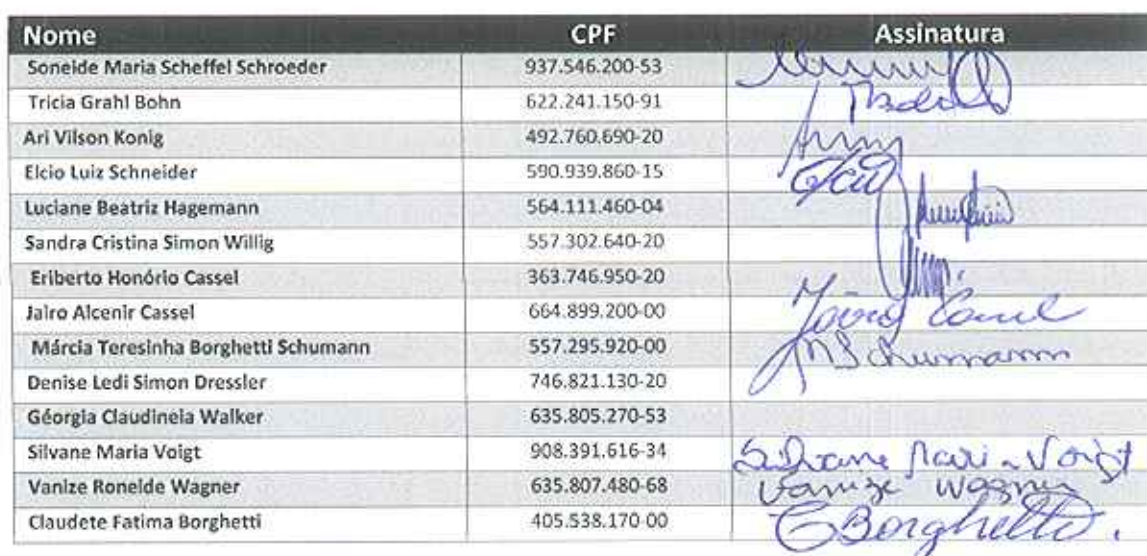 Nome CPF Assinatura
Soneide Maria Scheffel Schroeder 937.546.200-53
Tricia Grahl Bohn 622.241.150-91
Ari Vilson Konig 492.760.690-20
Elcio Luiz Schneider 590.939.860-15
Luciane Beatriz Hagemann 564.111.460-04
Sandra Cristina Simon Willig 557.302.640-20
Eriberto Honório Cassel 363.746.950-20
Jairo Alcenir Cassel 664.899.200-00 Jairo Cassel
Márcia Teresinha Borghetti Schumann 557.295.920-00 MSchumann
Denise Ledi Simon Dressler 746.821.130-20
Géorgia Claudineia Walker 635.805.270-53
Silvane Maria Voigt 908.391.616-34 Silvane Maria Voigt
Vanize Roneide Wagner 635.807.480-68 Vanize Wagner
Claudete Fatima Borghetti 405.538.170-00 CBorghetti.